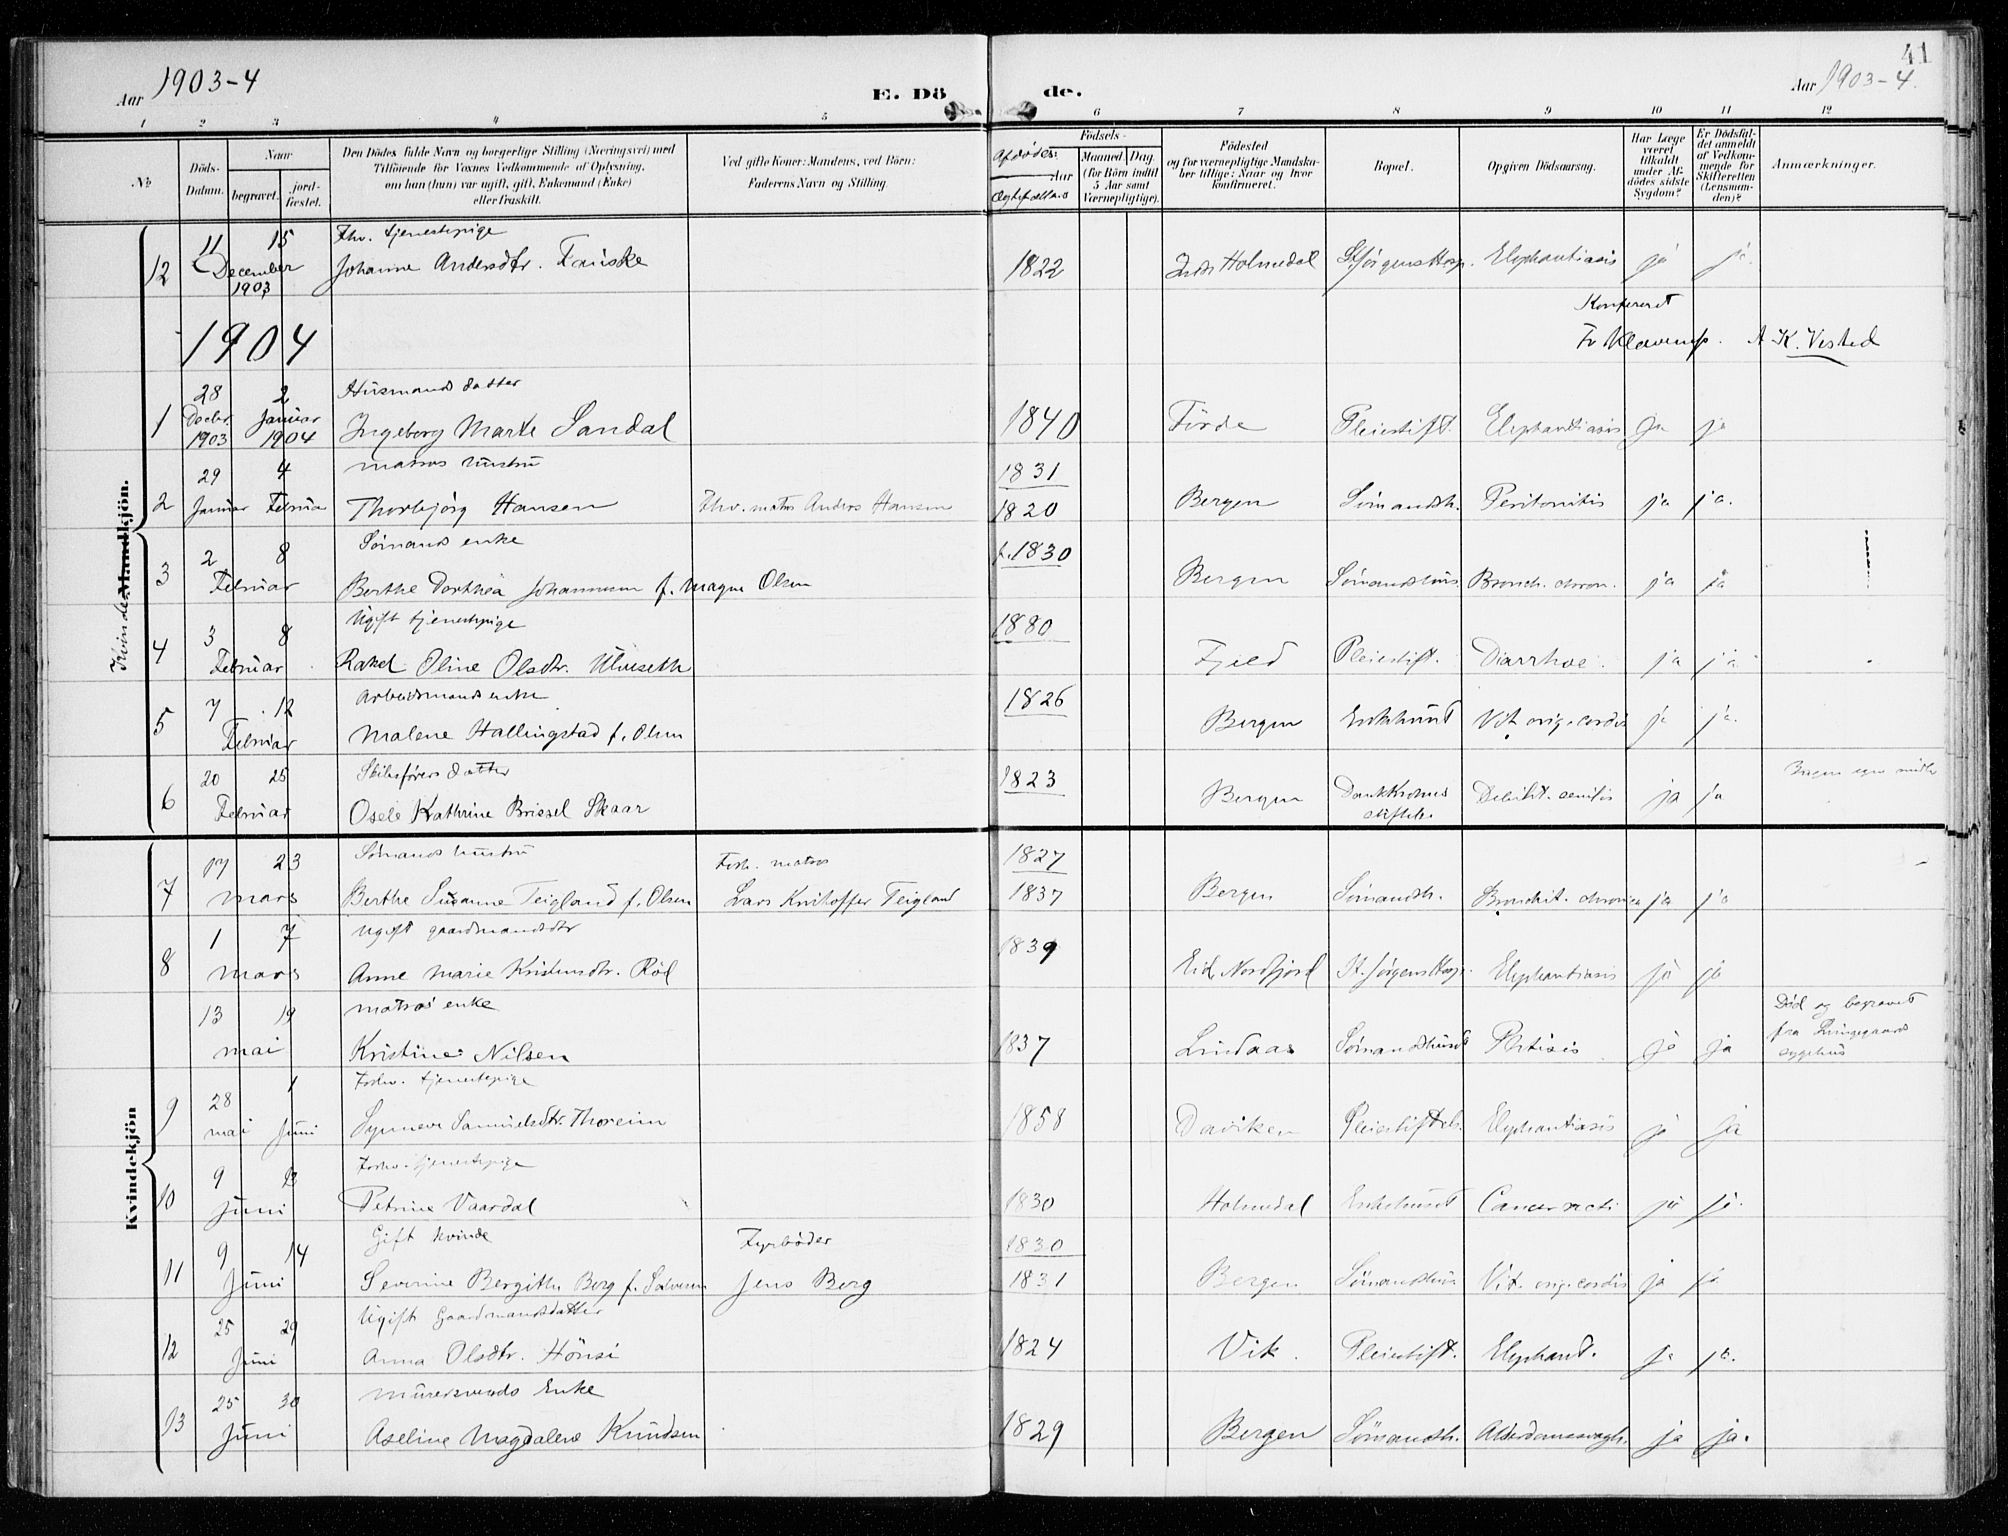 41
Aar 1903-4
E. Dö de.
Aar 1903-4.
1 2 3 4 5 6 7 8 9 10 11 12
No
Döds-Datum.
Naar
begravet.
jord-fæstet.
Den Dödes fulde Navn og borgerlige Stilling (Næringsvei) med
Tilföiende for Voxnes Vedkommende af Oplysning,
om han (hun) var ugift, gift, Enkemand (Enke)
eller fraskilt.
Ved gifte Koner: Mandens, ved Börn:
Faderens Navn og Stilling.
Födsels-
Afdødes: Aar
Ægtefælles
Maaned Dag
(for Börn indtil
5 Aar samt
Værnepligtige).
Födested
og for værnepligtige Mandska-
ber tillige: Naar og hvor
konfirmeret.
Bopæl.
Opgiven Dödsaarsag.
Har Læge
været
tilkaldt
under Af-
dödes sidste
Sygdom?
Er Dödsfal-
det anmeldt
af Vedkom-
mende for
Skifteretten
(Lensman-
den)?
Anmærkninger.
Kvinde Mandkjön.
12 11 15 December 1903 Fhv. tjenestepige
Johanne Andersdtr. Fauske 1822 Indr Holmedal St Jørgens Hosp. Elephantiasis ja ja.
Konfereret
1904
Fr Klaverup. A K. Vested
1 28 Decbr. 1903 2 Januar 1904 Husmands datter
Ingeborg Marte Sandal 1840 Førde Pleiestift. Elephantiasis Ja ja
2 29 Januar 4 Februar matros hustru
Thorbjørg Hansen Fhv. matros Anders Hansen 1831 1820 Bergen Sømandsh. Peritonitis ja ja.
3 2 8 Februar Sømands enke
Berthe Dorthea Johannesen f. Magnus Olsen f. 1830 Bergen Sømandshus. Bronch. chron. ja ja
4 3 8 Februar Ugift tjenestepige
Rakel Oline Olsdtr. Ulveseth 1880 Fjeld Pleiestift. Diarrhoe. ja ja
5 7 12 Februar Arbeidsmands enke
Malene Hallingstad f. Olsen 1826 Bergen Enkehuset Vit. orig. cordis ja ja.
6 20 25 Februar Skibsførers datter
Osele Kathrine Brissel Skaar 1823 Bergen Dankert Krohns stiftelse. Debilit. senilis ja ja
Kvindekjön
7 17 23 mars Sømands hustru
Berthe Susanne Teigland f. Olsen Forh. matros
Lars Kristoffer Teigland 1827 1837 Bergen Sømandsh. Bronchit. chronica ja ja
8 1 7 mars Ugift gaardmandsdtr
Anne Marie Kristensdtr. Röd 1839 Eid Nordfjord St. Jørgens Hosp. Elephantiasis ja ja
13 19 mai matros' enke
Kristine Nilsen 1837 Lindaas Sømandshuset Phtisis ja ja
Død og begravet
fra Lungegaards
sygehus
9 28 mai 1 Juni Forhv. tjenestepige
Synneve Samuelsdtr. Thoreim 1858 Daviken Pleiestiftels. Elephantiasis ja ja
10 9 13 Juni Forhv. tjenestepige
Petrine Vaardal 1830 Holmedal Enkehuset Cancer recti ja ja.
11 9 14 Juni Gift kvinde
Severine Bergithe Berg f. Salvesen Fyrbøder
Jens Berg 1830 1831 Bergen Sømandshus Vit. orig. cordis ja ja
12 25 29 Juni Ugift Gaardmandsdatter
Anna Olsdtr. Hönsi 1824 Vik. Pleiestift. Elephant. ja ja.
13 25 30 Juni Murersvends Enke
Aseline Magdalene Knudsen 1829 Bergen Sømandsh. Alderdomssvagh. ja ja.